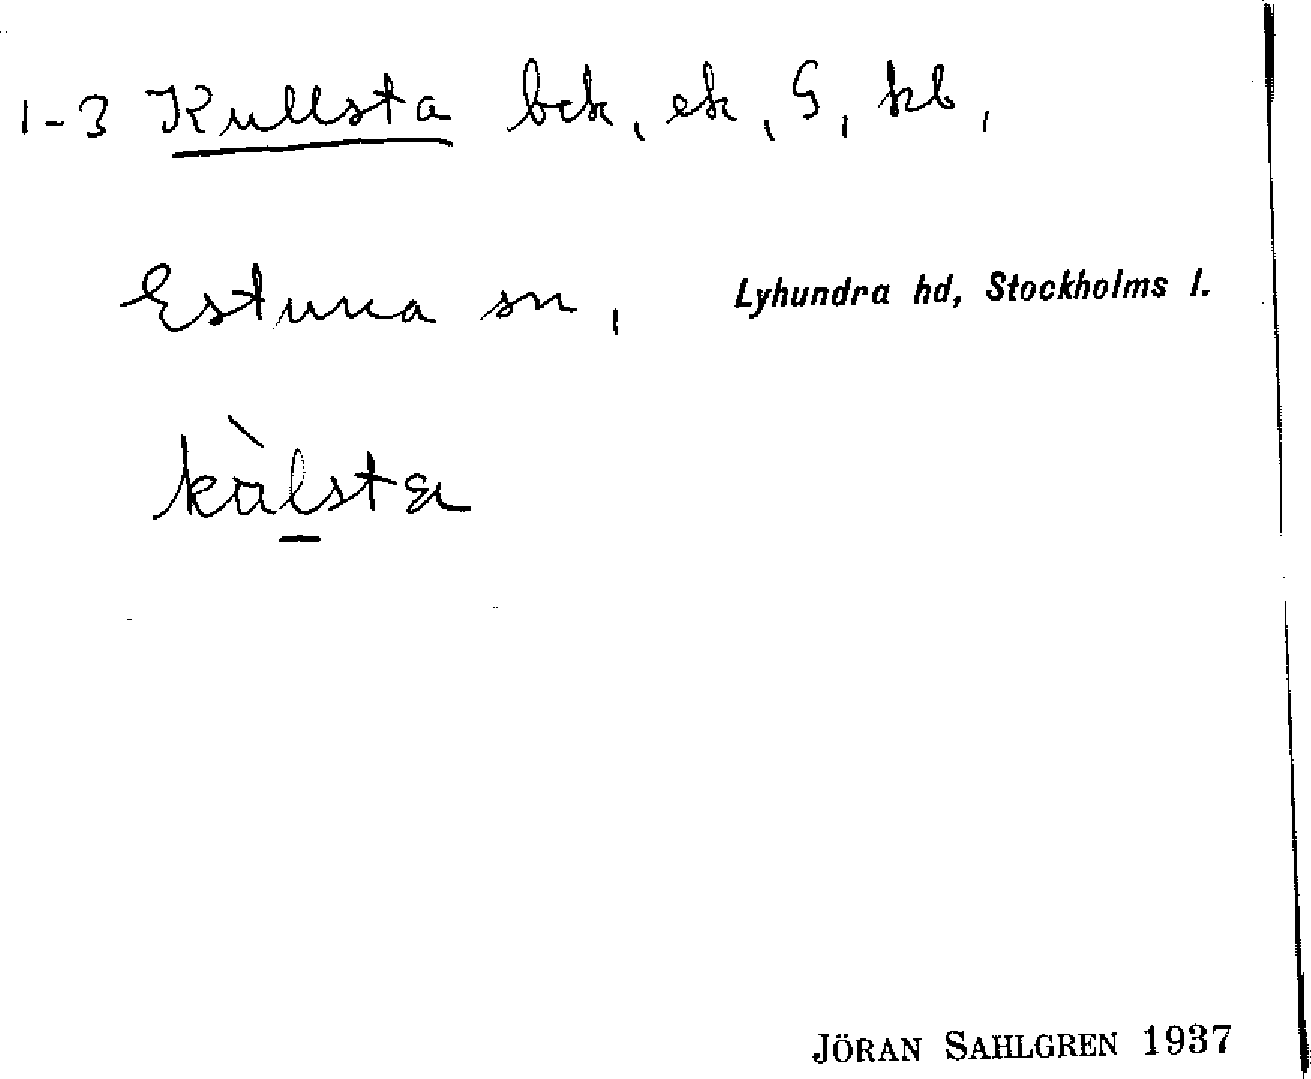 1-3 Kullsta bck, ek, G, kb,
Estuna sn, Lyhundra hd, Stockholms l.
kàlsta
JÖRAN SAHLGREN 1937